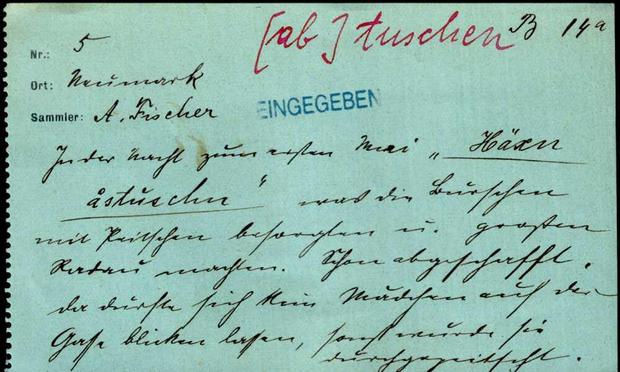 [ab] tuschen B 14a
Nr.: 5
Ort: Neumark
EINGEGEBEN
Sammler: A. Fischer
In der Nacht zum ersten Mai „Häxn
åstuschn“ was die Burschen
mit Peitschen besorgten u. großen
Radau machten. Schon abgeschafft,
da durfte sich kein Mädchen auf der
Gasse blicken lassen, sonst wurde sie
durchgepeitscht.